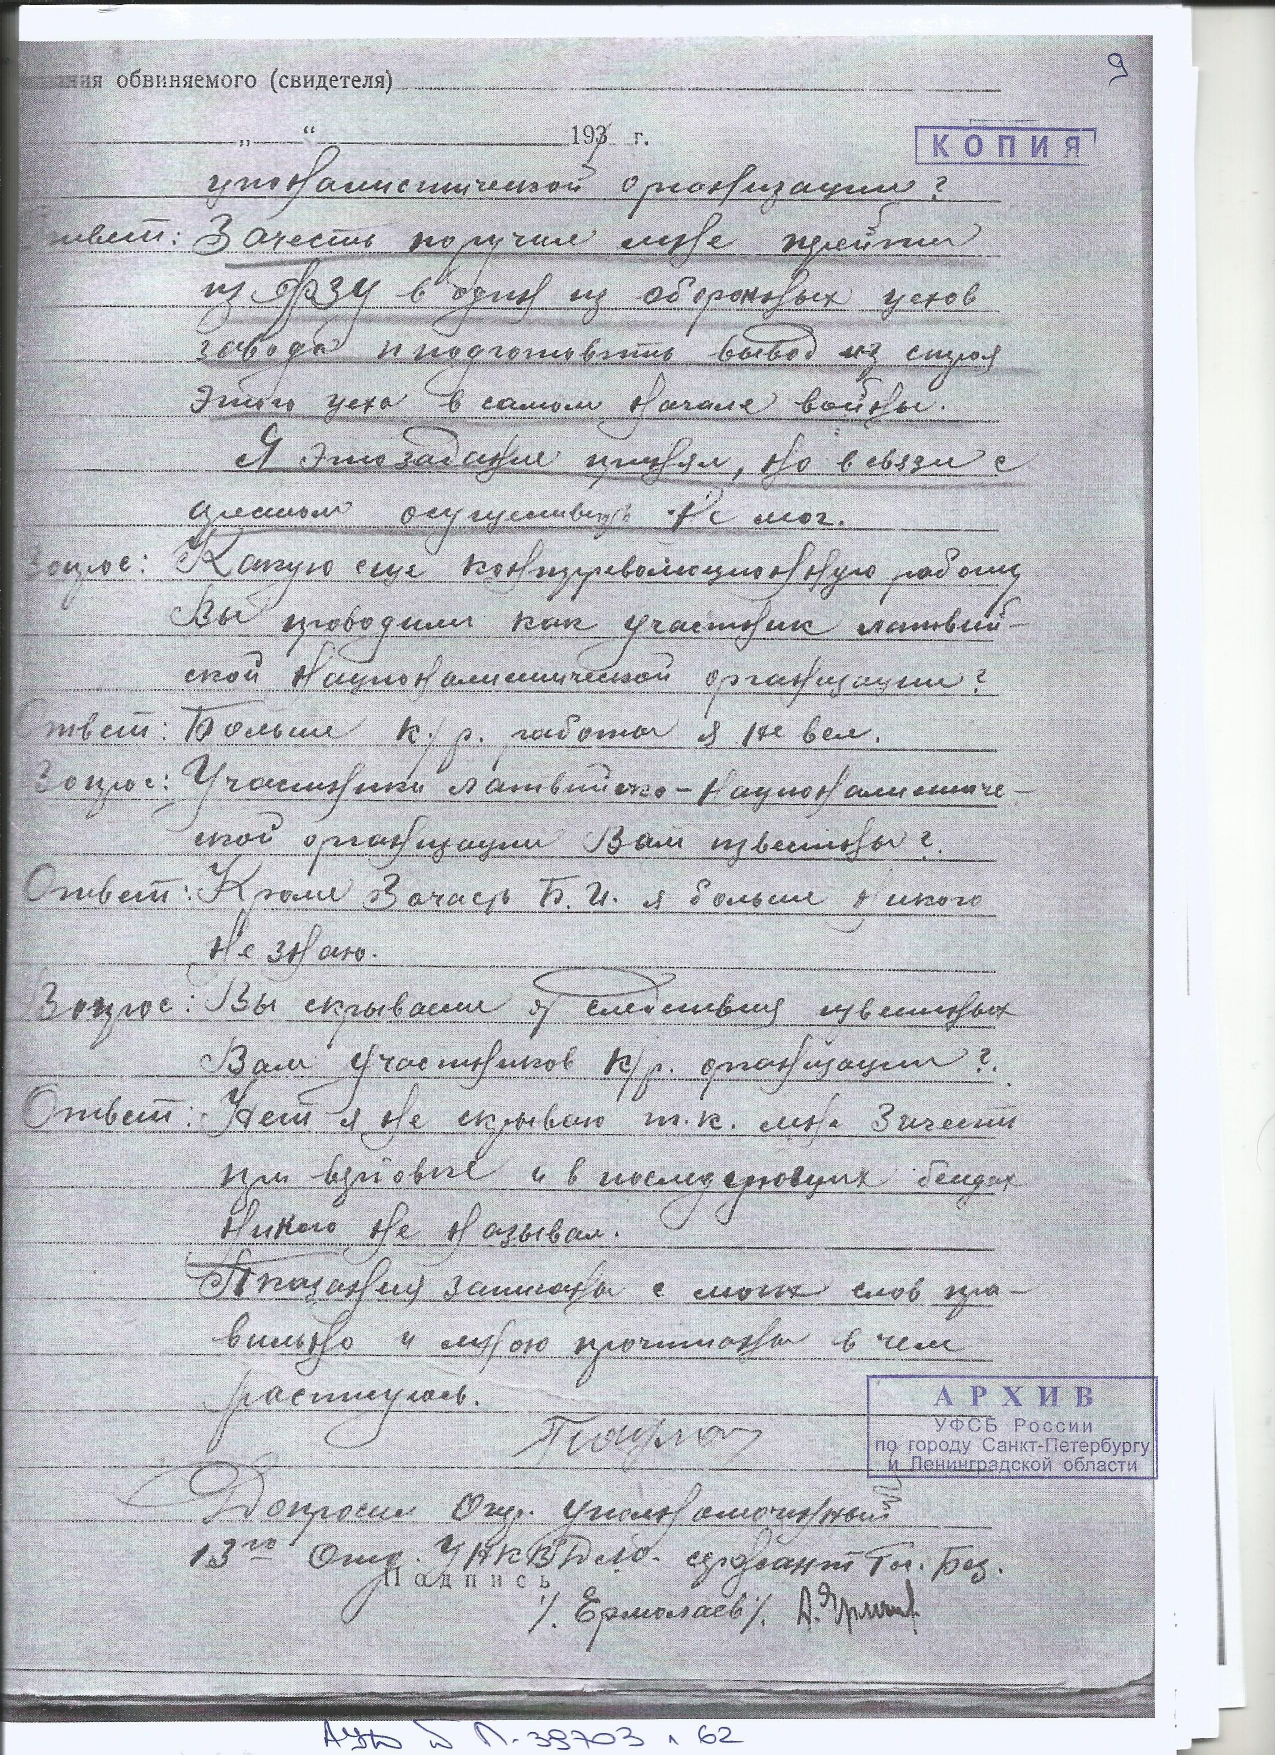 9
обвиняемого (свидетеля)
„ “ 193 г.
КОПИЯ
организации?
ответ: Зачесть поручил мне прейти
из ФЗУ в один из оборонных цехов
завода и подготовить вывод из строя
этого цеха в самом начале войны.
Я это задание принял, но в связи с
арестом осуществить не мог.
Вопрос: Какую еще контрреволюционную работу
Вы проводили как участник латвий-
ской националистической организации?
Ответ: Больше к/р. работы я не вел.
Вопрос: Участники латвийско-националистиче-
ской организации Вам известны?
Ответ: Кроме Зачесть Б.И. я больше никого
не знаю.
Вопрос: Вы скрываете от следствия известных
Вам участников к/р. организации?
Ответ: Нет я не скрываю т.к. мне Зачесть
при вербовке и в последующих беседах
никого не называл.
Показания записаны с моих слов пра-
вильно и мною прочитаны в чем
расписуюсь.
АРХИВ
УФСБ России
по городу Санкт-Петербургу
и Ленинградской области
Допросил Опер. уполномоченный
13го Отд. УНКВД ЛО. сержант Гос. Без.
Подпись
/. Ермолаев /.
АУД № П-39703 л 62